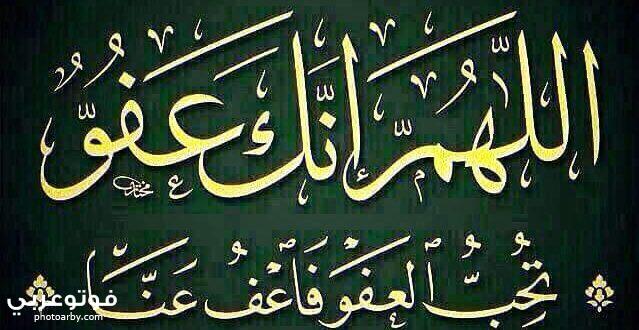 اللهم إنك عفو
تحب العفو فاعف عنا
فوتوعربي
photoarby.com